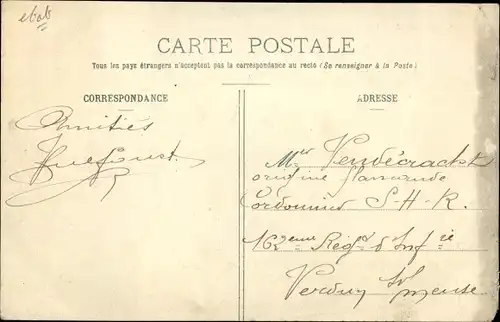 etab
CARTE POSTALE
Tous les pays étrangers n'acceptent pas la correspondance au recto (Se renseigner à la Poste)
CORRESPONDANCE
ADRESSE
Amitiés
Mer Vendécrackt
origine flamande
Cordonnier S-H-R.
162eme Régt d'Infie
Verdun
Meuse